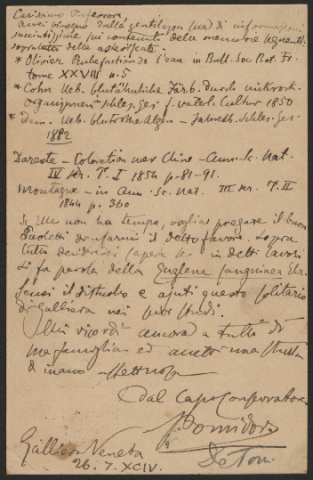 Carissimo Professore,
avrei bisogno dalla gentilezza (sua) di informazioni
succintissime sui contenuti delle memorie seguenti
sopratutto delle asteriscate.
* Olivier Rubefaction de l'eau in Bull. Soc. Bot. Fr.
tome XXVIII n. 5
* Cohn Ueb. blutähnliche Färb. durch mikrosk.
Organismen Schles. Ges. f. vaterl. Cultur 1850
* Idem. Ueb. blutrothe Algen - Jahresb. Schles. Ges.
1882
Dareste - Coloration mer Chine - Ann. Sc. Nat.
IV ser. T. I 1854 p. 81-91.
Montagne - in Ann. Sc. Nat. III ser. T. II
1844 p. 360
Se Ella non ha tempo, voglia pregare il buon
Paoletti di farmi il detto favore. Sopra
tutto desidererei sapere se in detti lavori
si fa parola della Euglena sanguinea Ehr.
Scusi il disturbo e ajuti questo solitario
di Galliera nei suoi studi.
Mi ricordi ancora a tutti di
sua famiglia ed accetti una stretta
di mano
Dal Capo Conspiratore
Pomidoro
De Toni
Galliera Veneta
26.7.XCIV.